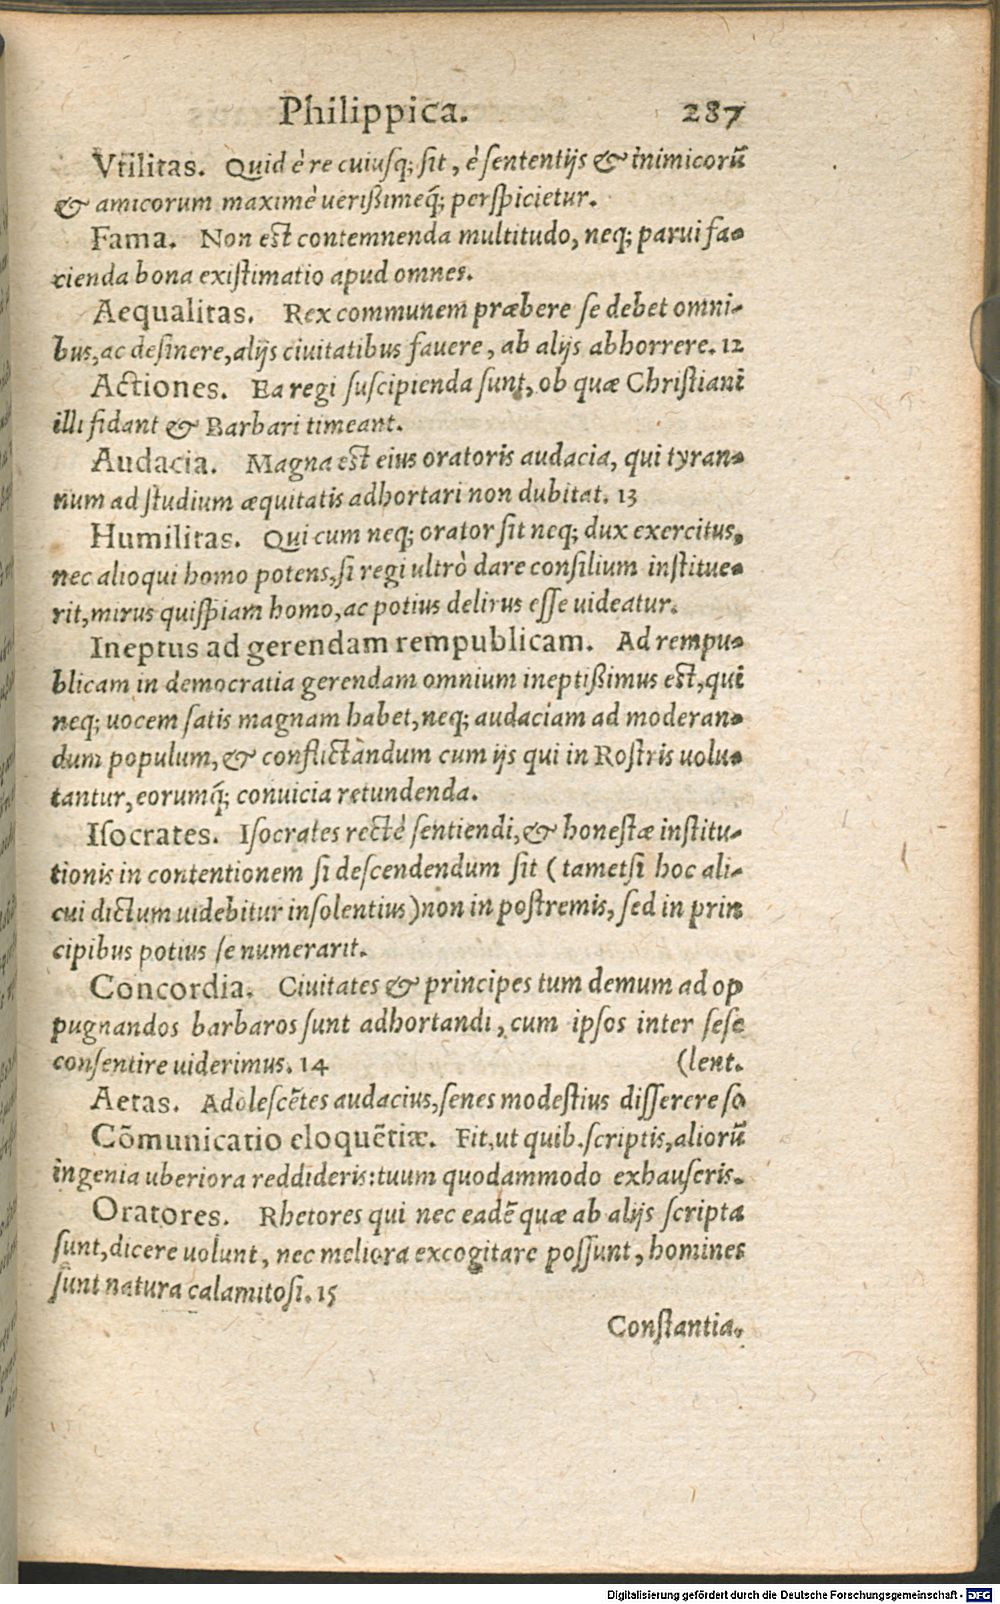 Philippica. 287
Vtilitas. Quid è re cuiusq; sit, è sententijs & inimicorũ
& amicorum maximè uerißimeq́; perspicietur.
Fama. Non est contemnenda multitudo, neq; parui fa-
cienda bona existimatio apud omnes.
Aequalitas. Rex communem præbere se debet omni-
bus, ac desinere, alijs ciuitatibus fauere, ab alijs abhorrere. 12
Actiones. Ea regi suscipienda sunt, ob quæ Christiani
illi fidant & Barbari timeant.
Audacia. Magna est eius oratoris audacia, qui tyran-
num ad studium æquitatis adhortari non dubitat. 13
Humilitas. Qui cum neq; orator sit neq; dux exercitus,
nec alioqui homo potens, si regi ultrò dare consilium institue-
rit, mirus quispiam homo, ac potius delirus esse uideatur.
Ineptus ad gerendam rempublicam. Ad rempu-
blicam in democratia gerendam omnium ineptißimus est, qui
neq; uocem satis magnam habet, neq; audaciam ad moderan-
dum populum, & conflictandum cum ijs qui in Rostris uolu-
tantur, eorumq́; conuicia retundenda.
Isocrates. Isocrates rectè sentiendi, & honestæ institu-
tionis in contentionem si descendendum sit (tametsi hoc ali-
cui dictum uidebitur insolentius) non in postremis, sed in prin
cipibus potius se numerarit.
Concordia. Ciuitates & principes tum demum ad op
pugnandos barbaros sunt adhortandi, cum ipsos inter sese
consentire uiderimus. 14 (lent.
Aetas. Adolescẽtes audacius, senes modestius disserere so
Cõmunicatio eloquẽtiæ. Fit, ut quib. scriptis, aliorũ
ingenia uberiora reddideris: tuum quodammodo exhauseris.
Oratores. Rhetores qui nec eadẽ quæ ab alijs scripta
sunt, dicere uolunt, nec meliora excogitare possunt, homines
sunt natura calamitosi. 15
Constantia.
Digitalisierung gefördert durch die Deutsche Forschungsgemeinschaft - DFG